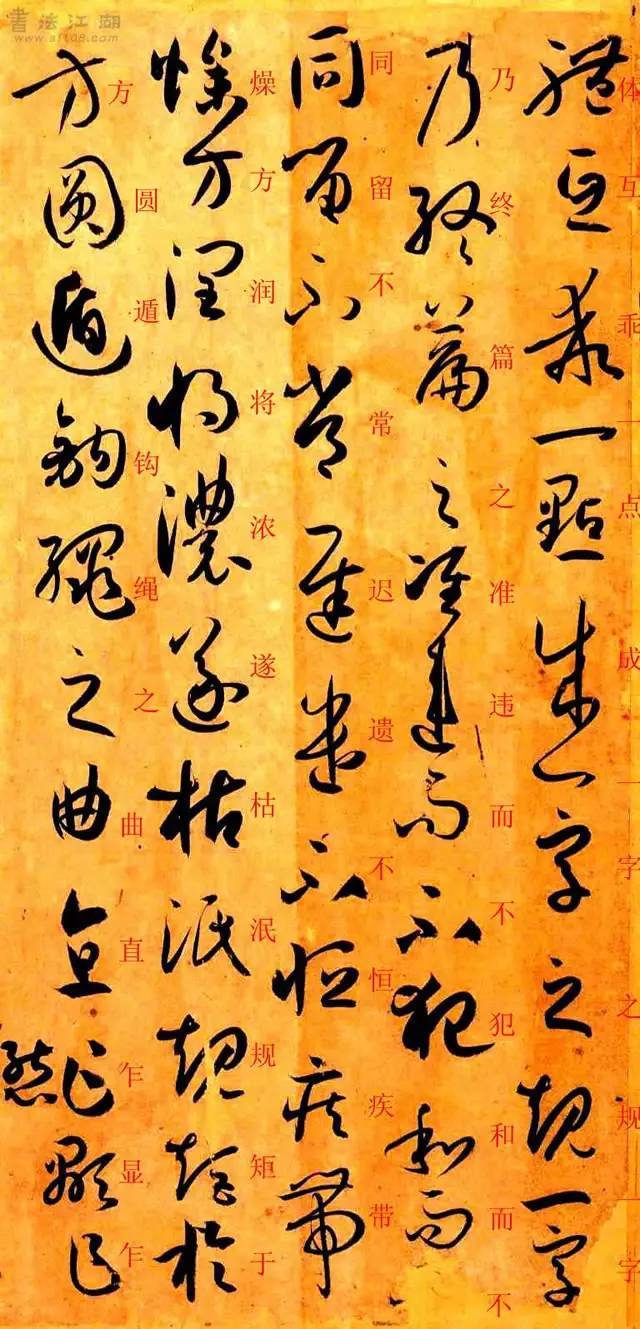 書法江湖
www.sf108.com
體互乖一點成一字之規一字
体互乖一点成一字之规一字
乃終篇之准違而不犯和而
乃终篇之准违而不犯和而不
同留不常遲遣不恒疾帶
同留不常迟遗不恒疾带
燥方潤將濃遂枯泯規矩於
燥方润将浓遂枯泯规矩于
方圓遁鉤繩之曲直乍顯乍
方圆遁钩绳之曲直乍显乍